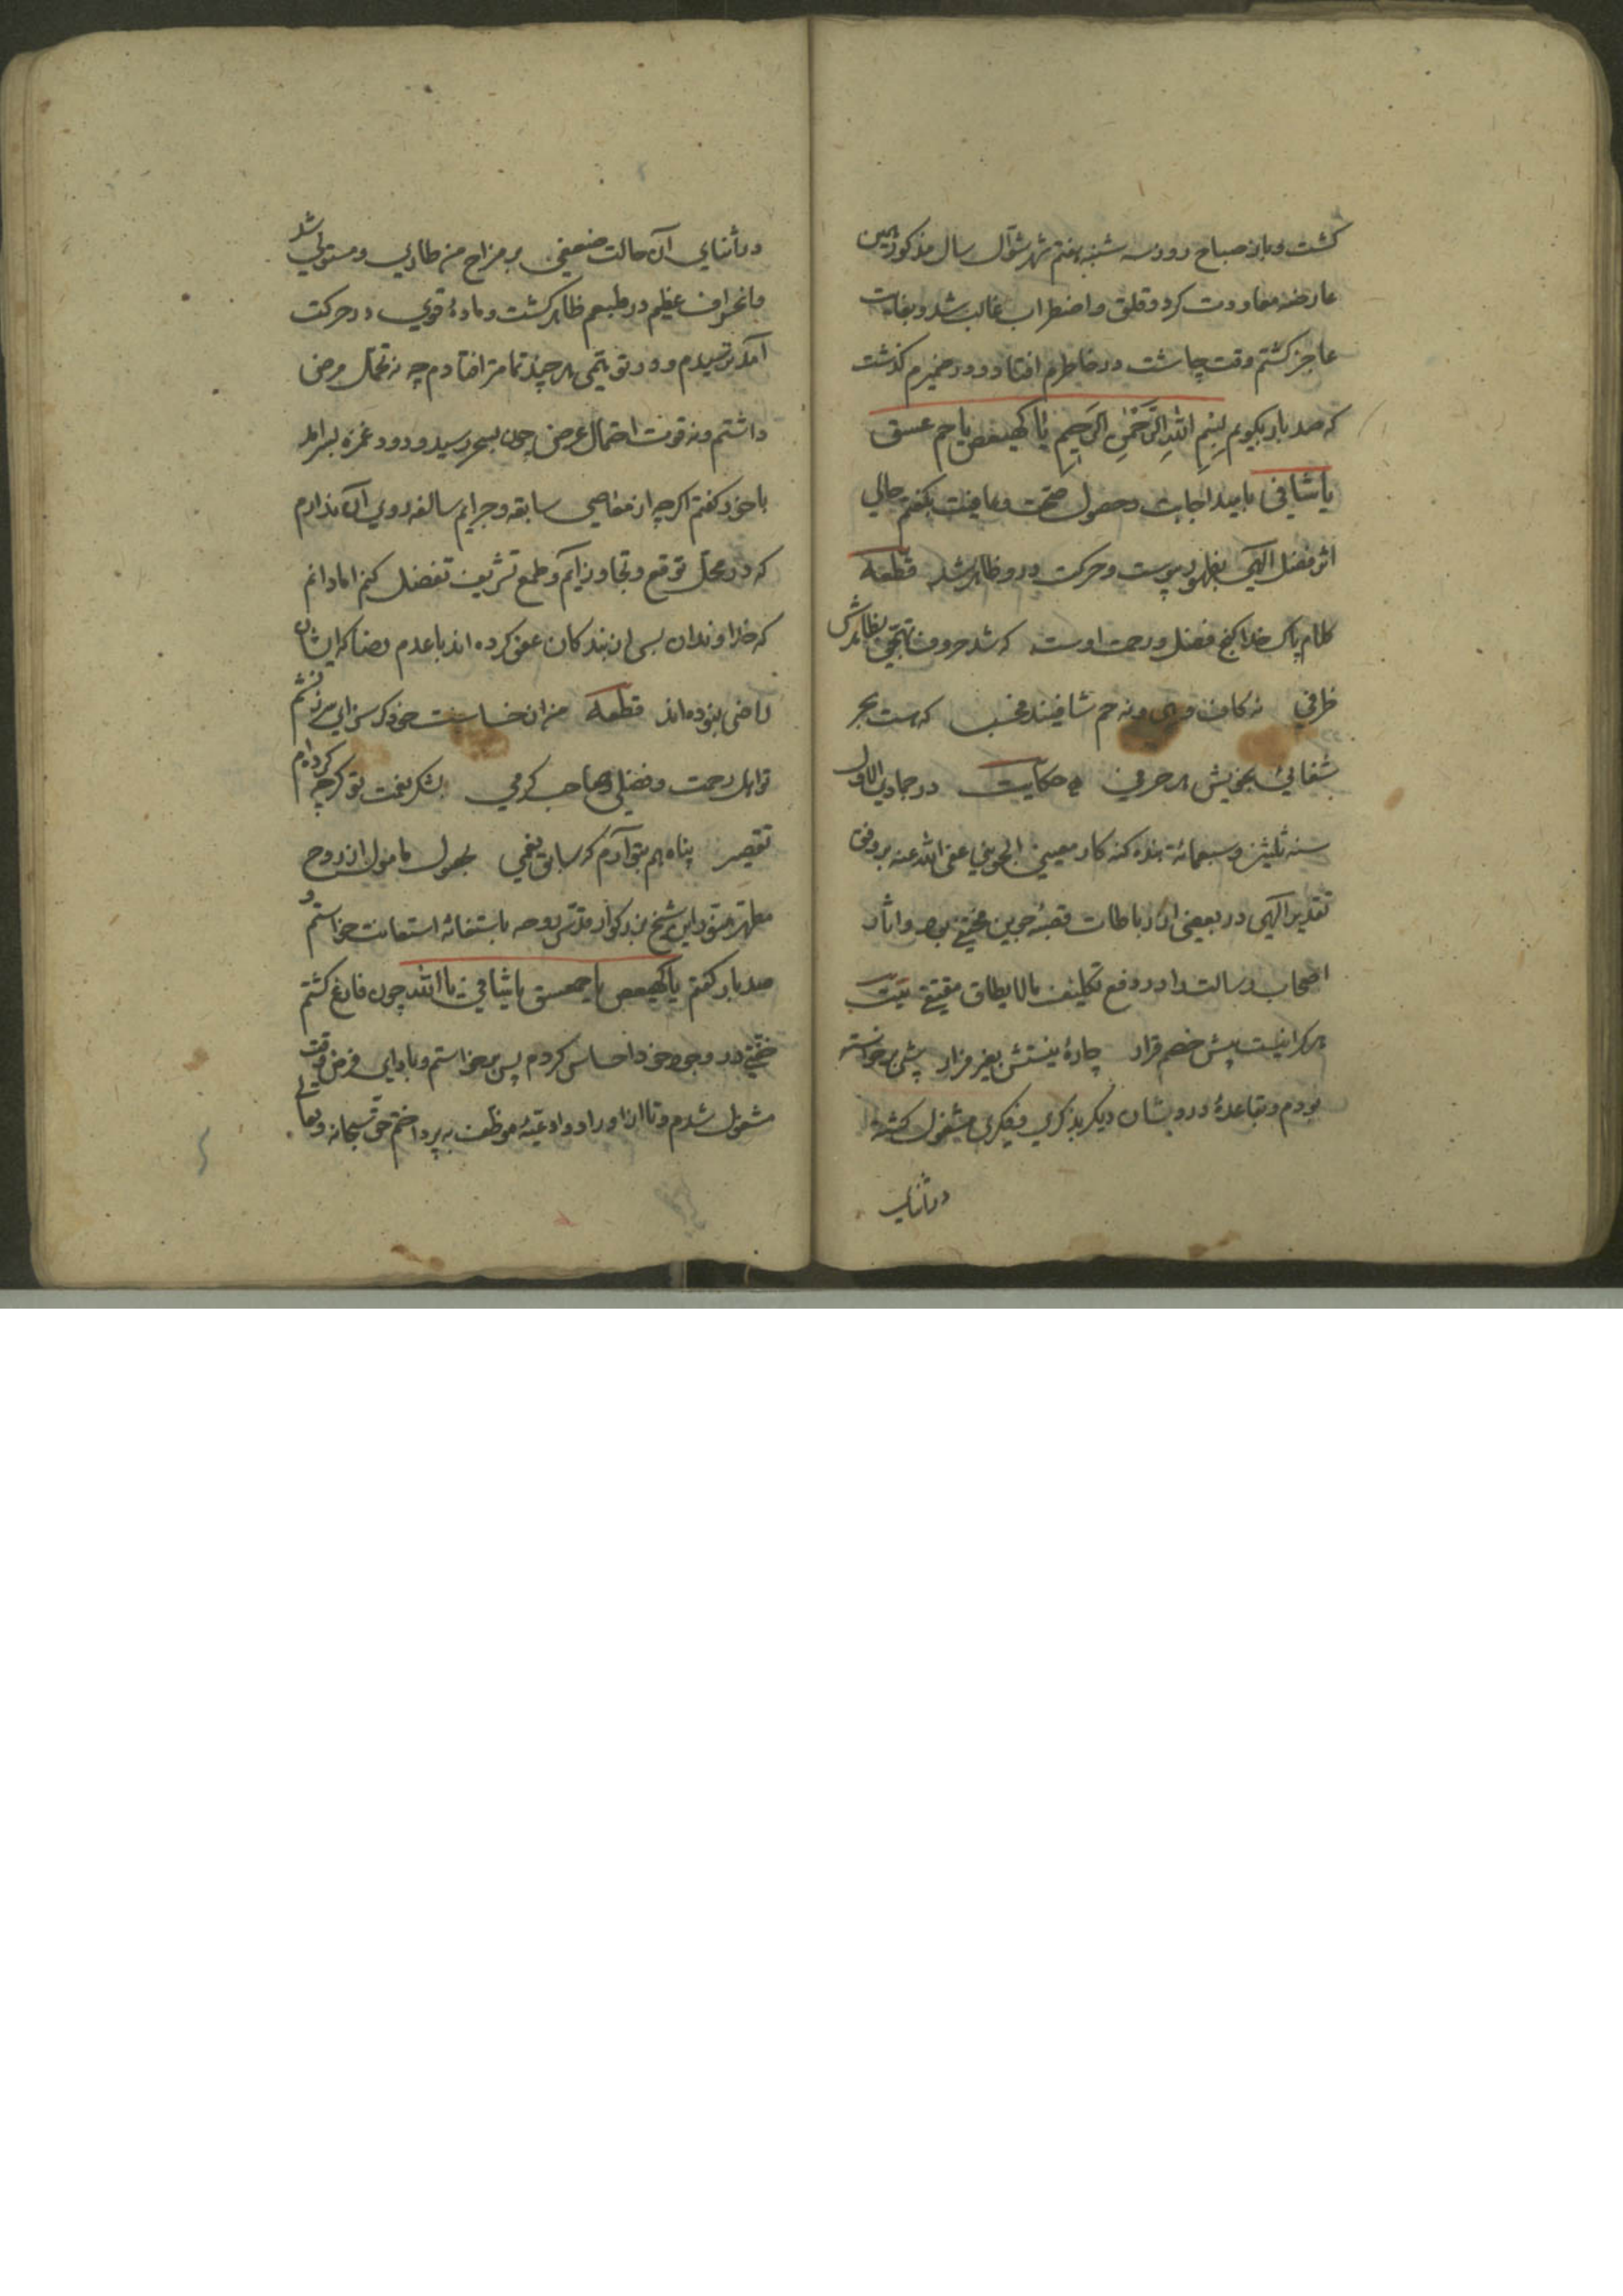 گشت و باز صباح روز سه شنبه هفتم شهر شوال سال مذکور همین
عارضه معاودت کرد و قلق و اضطراب غالب شد و بغایت
عاجز کشتم وقت چاشت در خاطرم افتاد و در ضمیرم کذشت
که صد بار بکویم بسم الله الرحمن الرحیم یا کهیعص یا حم عسق
یا شافی بامید اجابت و حصول صحت و عافیت بکفتم حالی
اثر فضل الهی بظهور پیوست و حرکت درو ظاهر شد قطعه
کلام پاک خدا کنج فضل و رحمت اوست که شد حروف تهجی بظاهرش
ظرفی نه کاف و هی و نه حم شافیند بحسب که هست بحر
شفائی بخویش هر حرفی حکایت در جمادی الاول
سنه ثلثین و سبعمائة بنده کنه کار معین الجوینی عفی الله عنه بر وفق
تقدیر الهی در بعضی از رباطات قصبه جوین مختفی بود و آثار
اصحاب رسالت را در دفع تکلیف مالایطاق بیت
هر کرا نیست پیش خصم قرار چارۀ نیستش بغیر فرار شبی برخواسته
بودم و بقاعدۀ درویشان دیکر بذکری و فکری مشغول کشته
در اثنای
در اثنای آن حالت ضعفی بر مزاج من طاری و مستولی شد
و انحراف عظیم در طبعم ظاهر کشت و مادۀ قوی در حرکت
آمد بترسیدم و در توهمی هر چند تمامتر افتادم چه نه تحمل مرض
داشتم و نه قوت احتمال عرض چون بسحر رسید و درد غمزه بسر آمد
با خود کفتم اکرچه از معاصی سابقه و جرایم سالفه روی آن ندارم
که در محل توقع و تجاوز آیم و طمع تشریف تفضل کنم اما دانم
که خداوندان بسی از بندکان عفو کرده اند با عدم رضا که ایشان
راضی نبوده اند قطعه من از خساست خود کر سزای سرزنشم
تو اهل رحمت و فضلی و صاحب کرمی بشکر نعمت تو کرچه کرده ام
تقصیر پناه هم بتو آرم که سابق نعمی بحصول مامول از روح
مطهر منور این شیخ بزرکوار قدس روحه باستغاثه استعانت خواستم و
صد بار کفتم یا کهیعص یا حمعسق یا شافی یا الله چون فارغ کشتم
خفتی در وجود خود احساس کردم پس برخواستم و بادای فرض وقت
مشغول شدم و تا از اوراد و ادعیۀ موظف به پرداختم حق سبحانه و تعالی